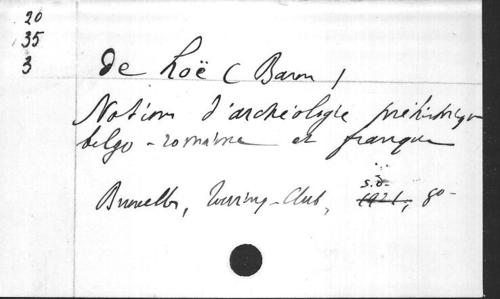 20
35
3
de Loë (Baron)
Notions d'archéologie préhistorique
belgo-romaine et franque
s.d.
Bruxelles, Touring-Club, 1921, 80-